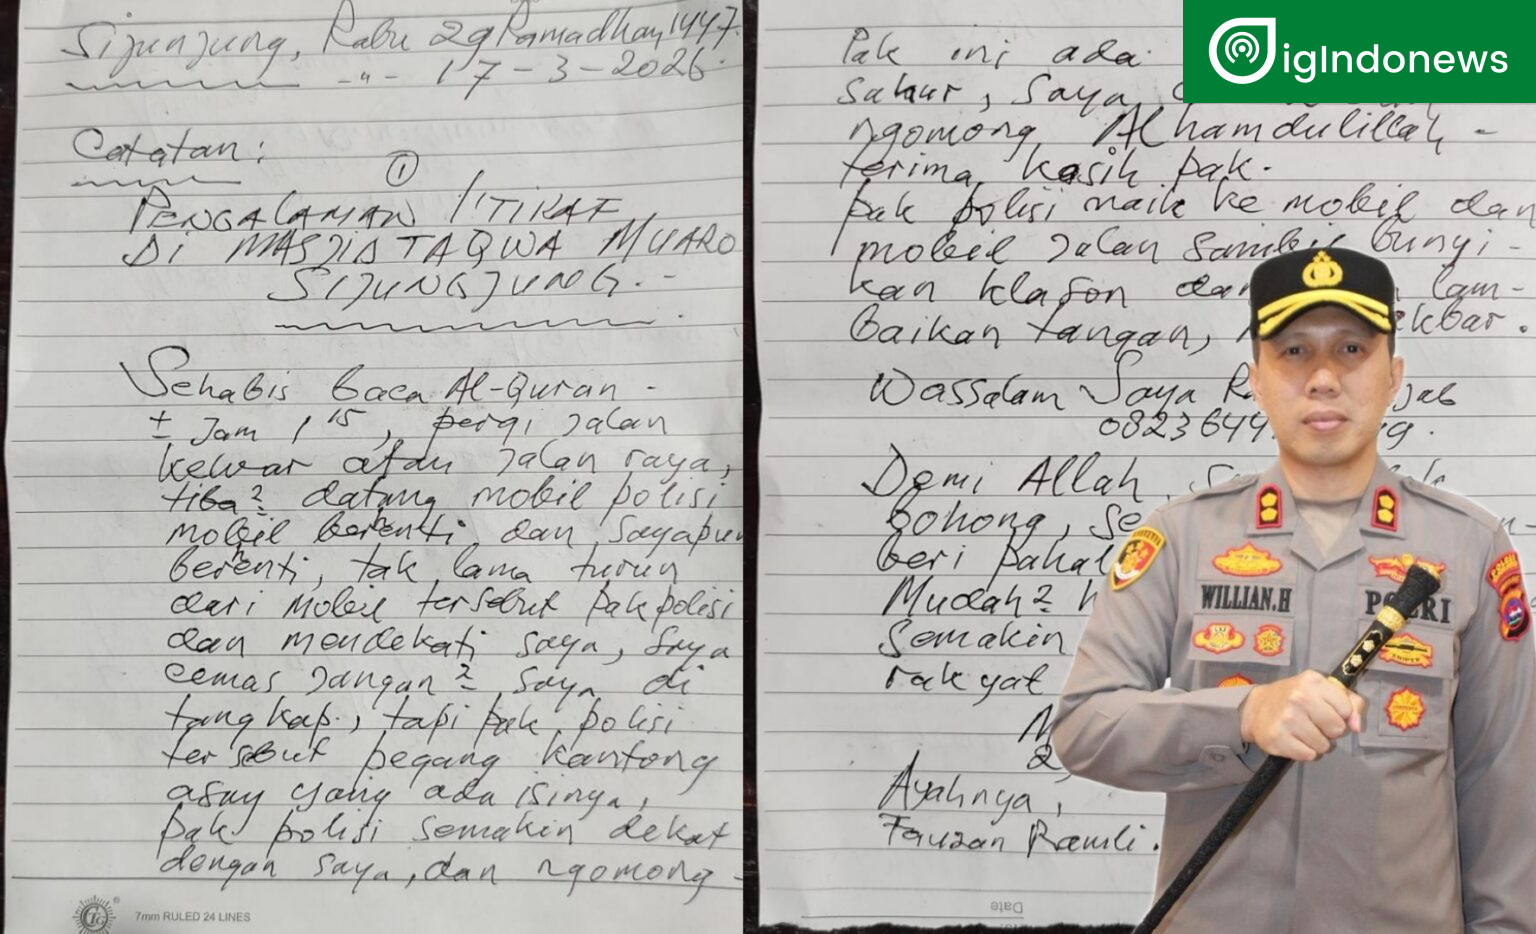 Sijunjung, Rabu 29 Ramadhan 1447.
-"- 17-3-2026.
Catatan:
①
PENGALAMAN I'TIKAF
DI MASJID TAQWA MUARO
SIJUNGJUNG.-
Sehabis baca Al-Quran -
± Jam 1 15, pergi jalan
keluar atau jalan raya,
tiba2 datang mobil polisi
mobil berhenti dan sayapun
berhenti, tak lama turun
dari mobil tersebut pak polisi
dan mendekati saya, saya
cemas jangan2 saya di
tangkap., tapi pak polisi
tersebut pegang kantong
asoy yang ada isinya,
pak polisi semakin dekat
dengan saya, dan ngomong -
7mm RULED 24 LINES
Pak ini ada
sahur, saya
ngomong Alhamdulillah -
terima kasih pak.
pak polisi naik ke mobil dan
mobil jalan sambil bunyi-
kan klason dan lam-
baikan tangan, ekbar.
Wassalam Saya jab
0823644 9.
Demi Allah
bohong, se
beri pahal
Mudah2
semakin
rakyat
M
2,
Ayahnya,
Fauzan Ramli.
Date
igIndonews
WILLIAN.H
POLRI
SNIPER